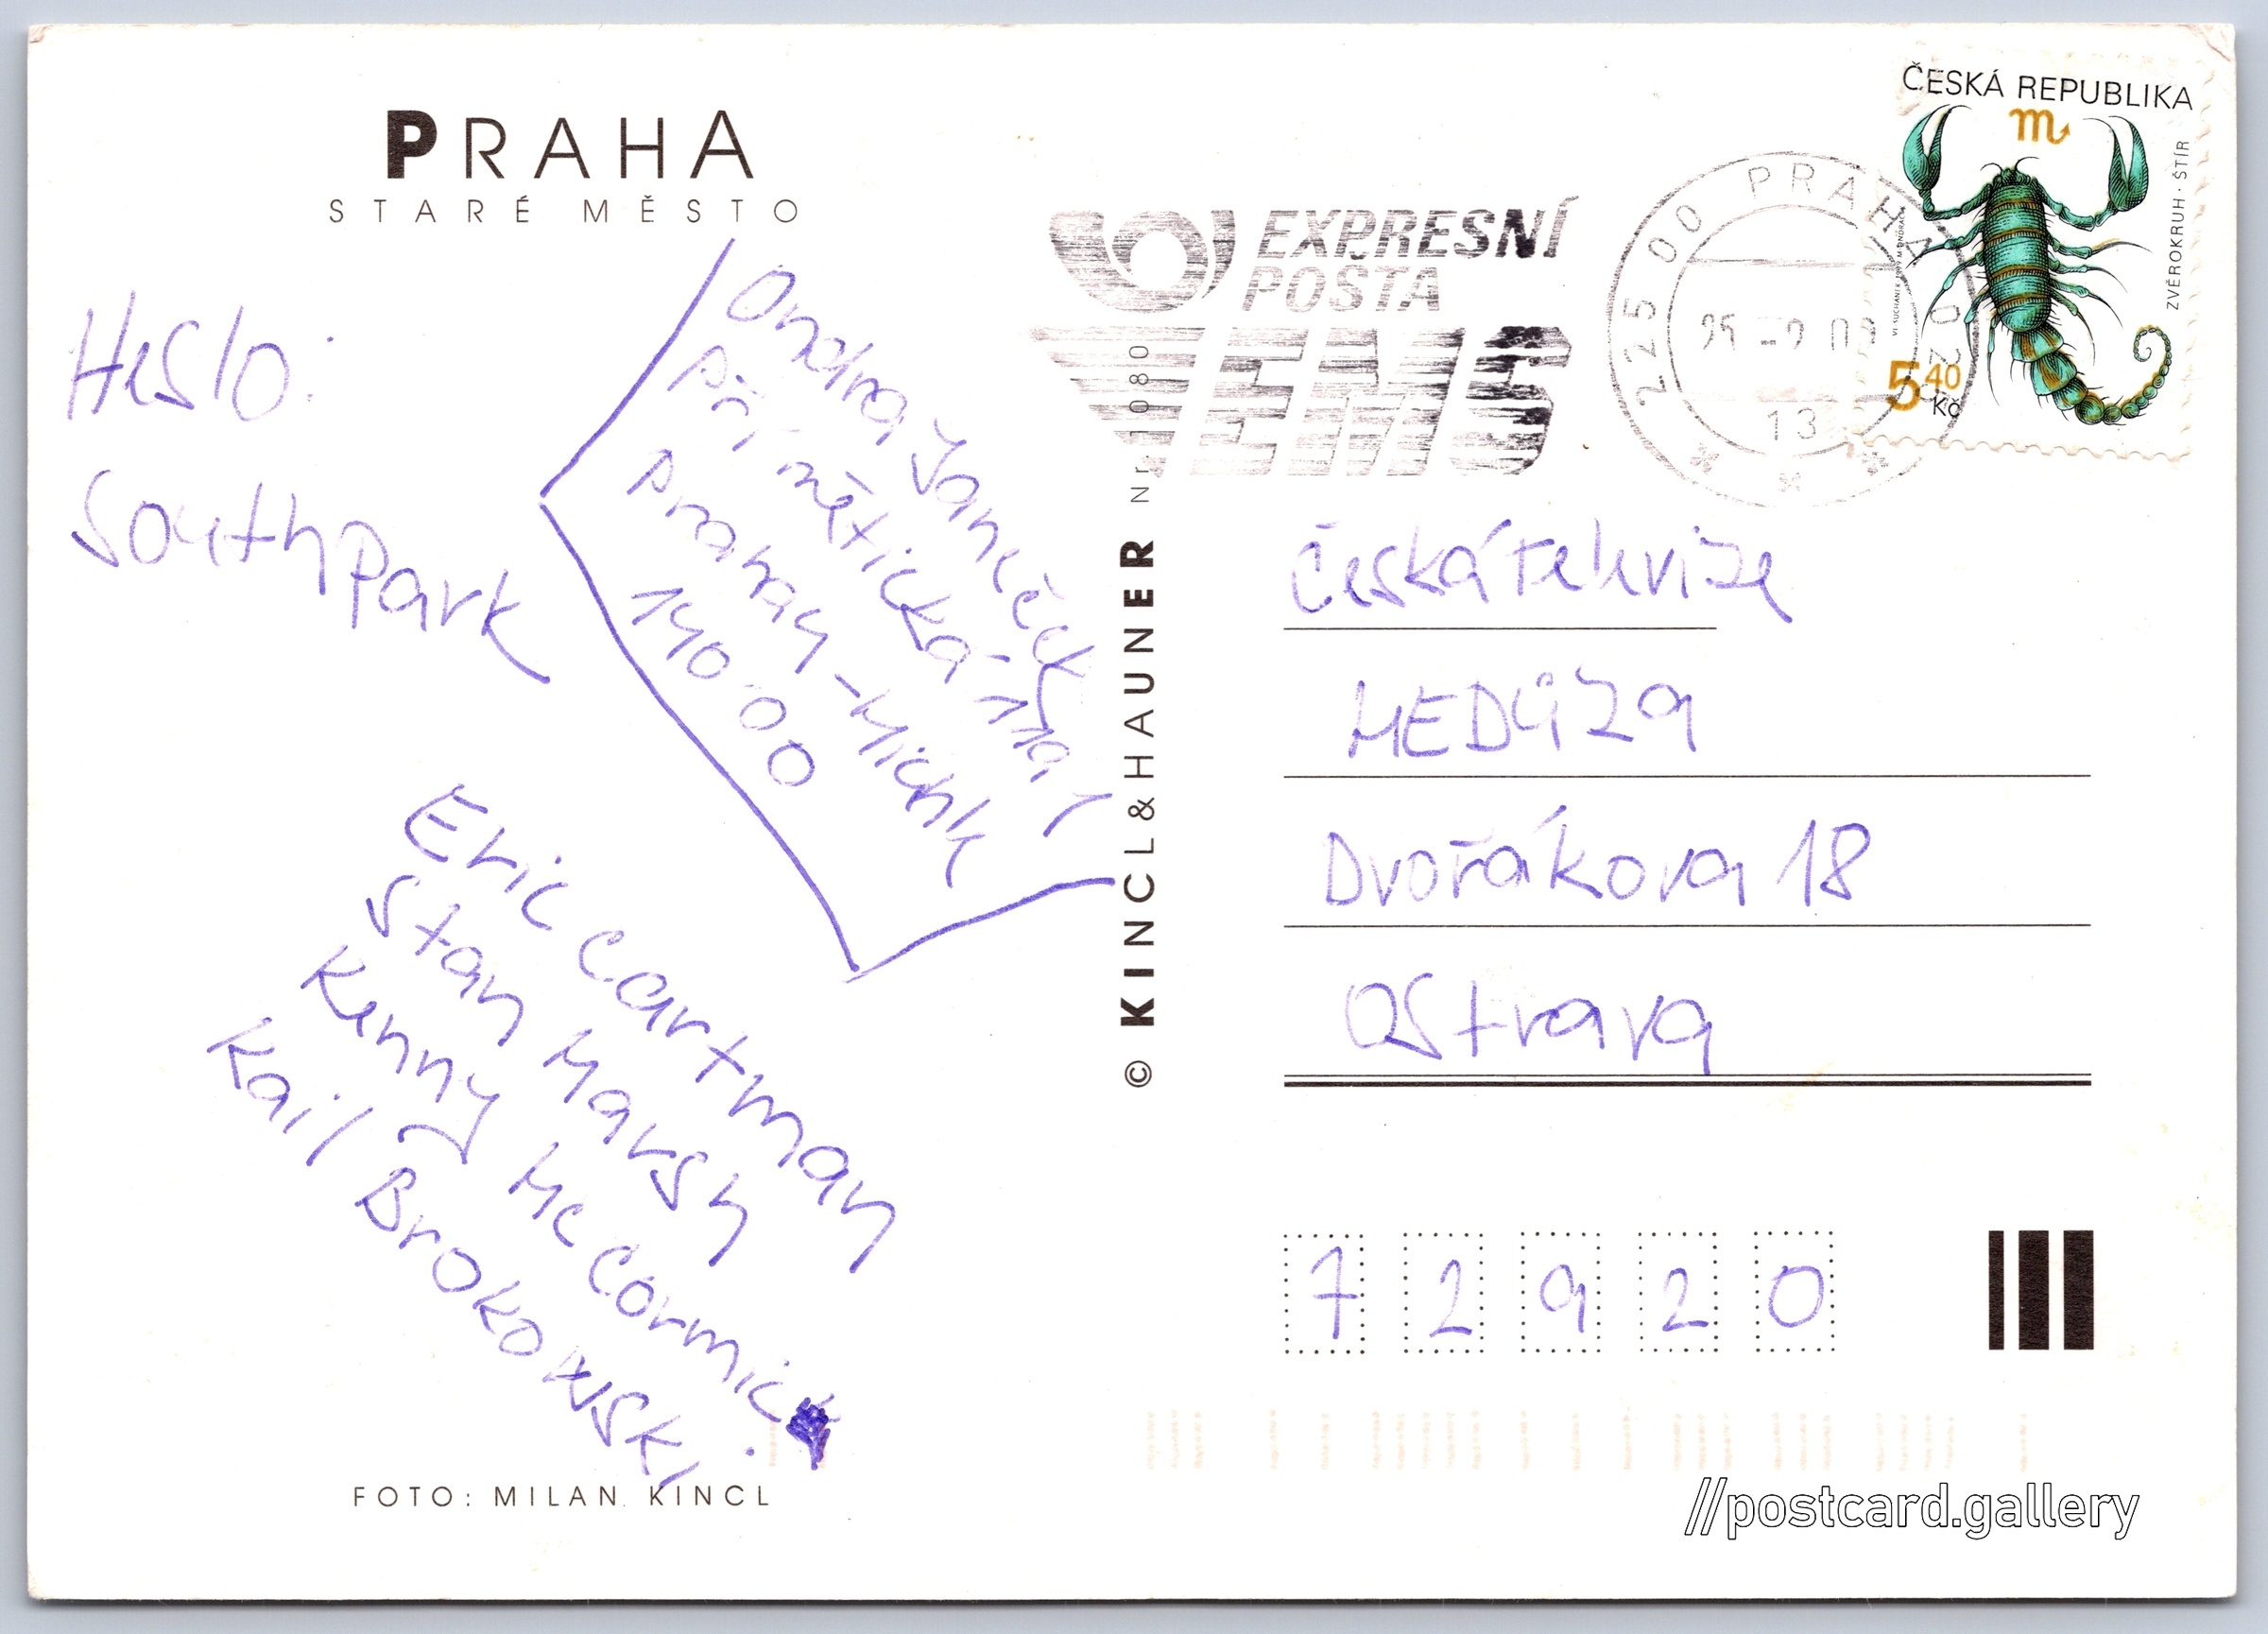 PRAHA
STARÉ MĚSTO
Heslo:
Southpark
Ondra Janeček
Praha 4 - Michle
140 00
Eric Cartman
Stan Marsh
Kenny McCormic
Kail Brokowski
FOTO: MILAN KINCL
© KINCL & HAUNER Nr. 1080
EXPRESNÍ
POŠTA
EMS
225 00 PRAHA 025
13
ČESKÁ REPUBLIKA
ZVĚROKRUH · ŠTÍR
5 40
Kč
Českátelevize
MEDúza
Dvořákova 18
Ostrava
7 2 9 2 0
//postcard.gallery